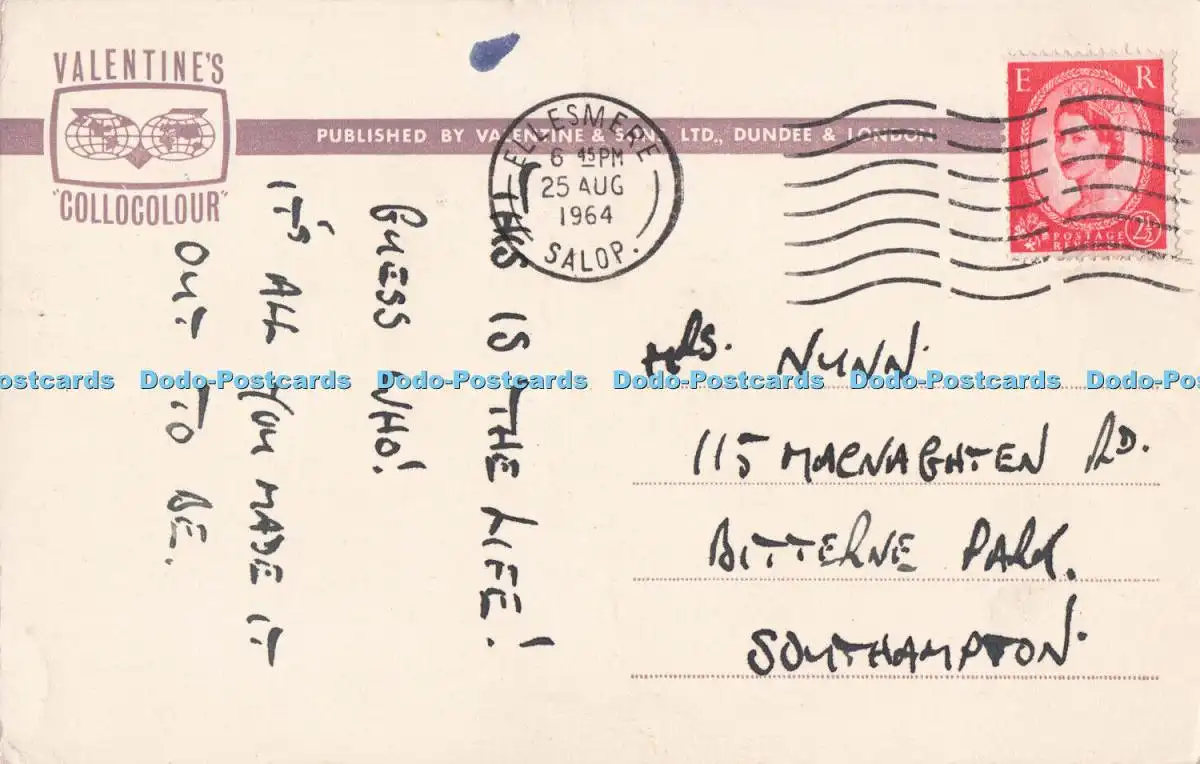 VALENTINE'S
"COLLOCOLOUR"
PUBLISHED BY VALENTINE & SONS LTD., DUNDEE & LONDON
ELLESMERE
6 45 PM
25 AUG
1964
SALOP.
E R
POSTAGE
2½
THIS IS THE LIFE!
GUESS WHO!
IT'S ALL YOU MADE IT
OUT TO BE.
MRS. NUNN.
115 MACNAGHTEN RD.
BITTERNE PARK.
SOUTHAMPTON.
Dodo-Postcards Dodo-Postcards Dodo-Postcards Dodo-Postcards Dodo-Postcards